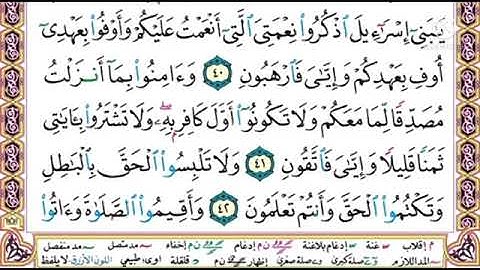 يَٰبَنِىٓ إِسْرَٰٓءِيلَ ٱذْكُرُوا۟ نِعْمَتِىَ ٱلَّتِىٓ أَنْعَمْتُ عَلَيْكُمْ وَأَوْفُوا۟ بِعَهْدِىٓ
أُوفِ بِعَهْدِكُمْ وَإِيَّٰىَ فَٱرْهَبُونِ ٤٠ وَءَامِنُوا۟ بِمَآ أَنزَلْتُ
مُصَدِّقًا لِّمَا مَعَكُمْ وَلَا تَكُونُوٓا۟ أَوَّلَ كَافِرِۭ بِهِۦ وَلَا تَشْتَرُوا۟ بِـَٔايَٰتِى
ثَمَنًا قَلِيلًا وَإِيَّٰىَ فَٱتَّقُونِ ٤١ وَلَا تَلْبِسُوا۟ ٱلْحَقَّ بِٱلْبَٰطِلِ
وَتَكْتُمُوا۟ ٱلْحَقَّ وَأَنتُمْ تَعْلَمُونَ ٤٢ وَأَقِيمُوا۟ ٱلصَّلَوٰةَ وَءَاتُوا۟
إقلاب غنة إدغام بلاغنة إدغام إخفاء مد متصل مد منفصل
المد اللازم صلة كبرى صلة صغرى إظهار قلقلة طبيعي اللون الأزرق لا يلفظ